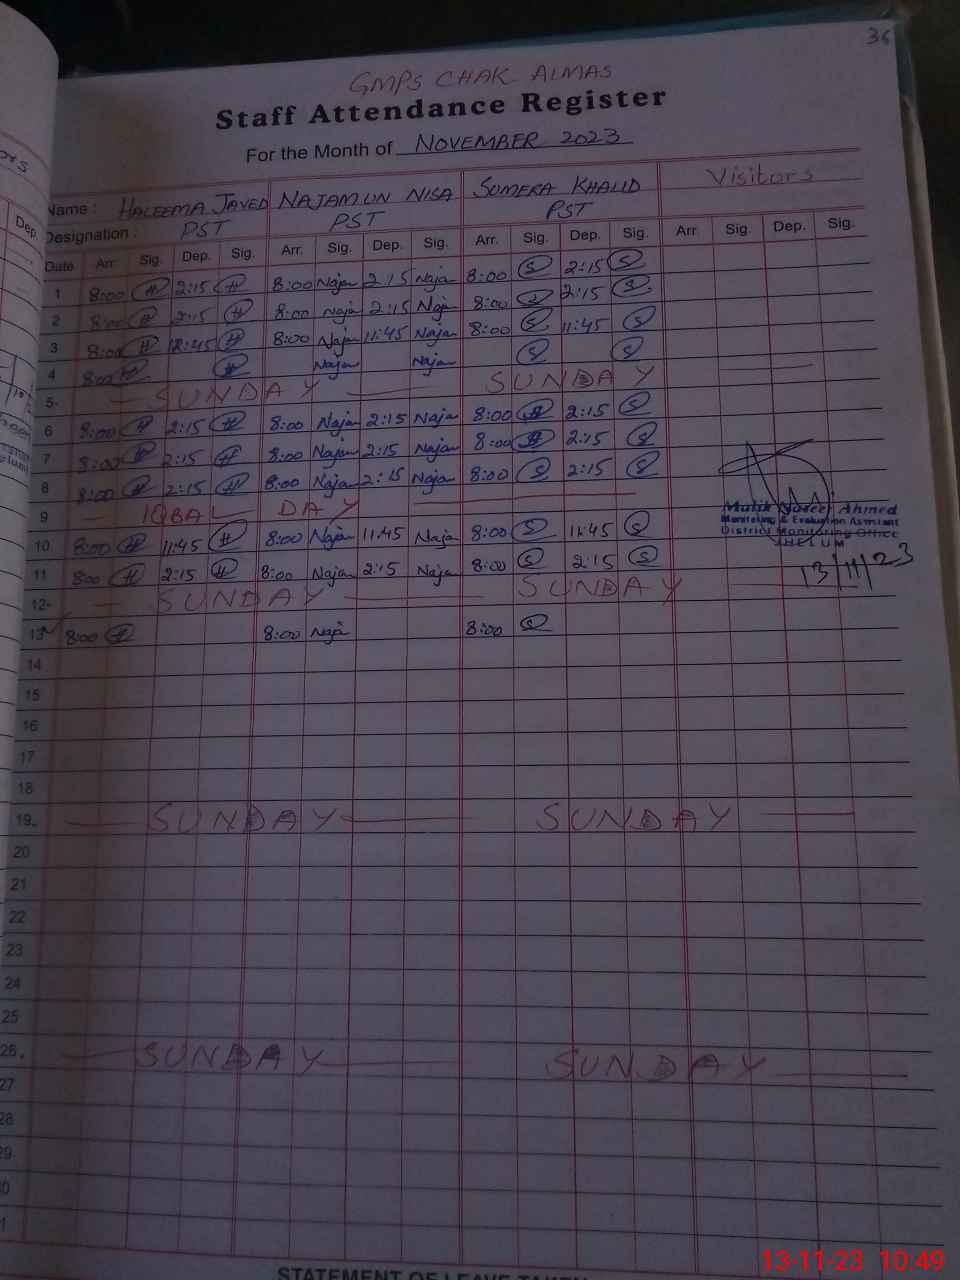 36
GMPS CHAK ALMAS
Staff Attendance Register
For the Month of NOVEMBER 2023
Name : HALEEMA JAVED NAJAM UN NISA SUMERA KHALID Visitors
Designation : PST PST PST
Date Arr. Sig. Dep. Sig. Arr. Sig. Dep. Sig. Arr. Sig. Dep. Sig. Arr. Sig. Dep. Sig.
1 8:00 H 2:15 H 8:00 Naja 2:15 Naja 8:00 S 2:15 S
2 8:00 H 2:15 H 8:00 Naja 2:15 Naja 8:00 S 2:15 S
3 8:00 H 12:45 H 8:00 Naja 11:45 Naja 8:00 S 11:45 S
4 8:00 H H Naja Naja S S
5- SUNDAY SUNDAY
6 8:00 H 2:15 H 8:00 Naja 2:15 Naja 8:00 2:15 S
7 8:00 H 2:15 H 8:00 Naja 2:15 Naja 8:00 2:15 S
8 8:00 H 2:15 H 8:00 Naja 2:15 Naja 8:00 S 2:15 S
9 IQBAL DAY
Ahmed
Monitoring & Evaluation Assistant
District Monitoring Office
JHELUM
10 8:00 H 11:45 H 8:00 Naja 11:45 Naja 8:00 S 11:45 S
11 8:00 H 2:15 H 8:00 Naja 2:15 Naja 8:00 S 2:15 S
13/11/23
12- SUNDAY SUNDAY
13 8:00 H 8:00 Naja 8:00 S
14
15
16
17
18
19. SUNDAY SUNDAY
20
21
22
23
24
25
26. SUNDAY SUNDAY
27
28
29
STATEMENT OF LEAVE TAKEN
13-11-23 10:49